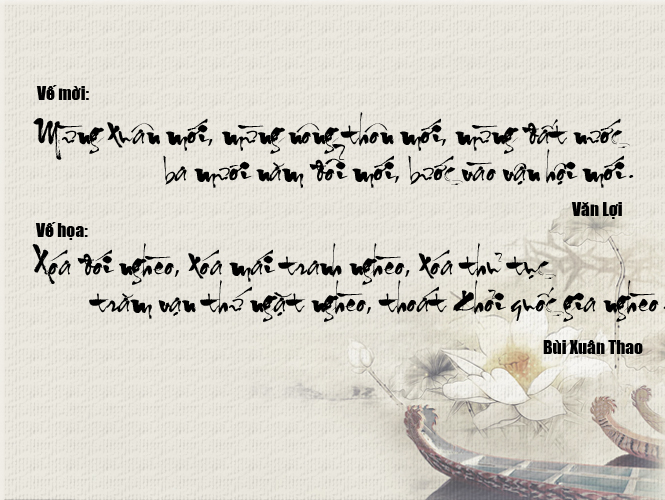 Vế mời:
Mừng Xuân mới, mừng nông thôn mới, mừng đất nước
ba mươi năm đổi mới, bước vào vận hội mới.
Văn Lợi
Vế họa:
Xóa đói nghèo, xóa mái tranh nghèo, xóa thủ tục
trăm vạn thứ ngặt nghèo, thoát khỏi quốc gia nghèo.
Bùi Xuân Thao